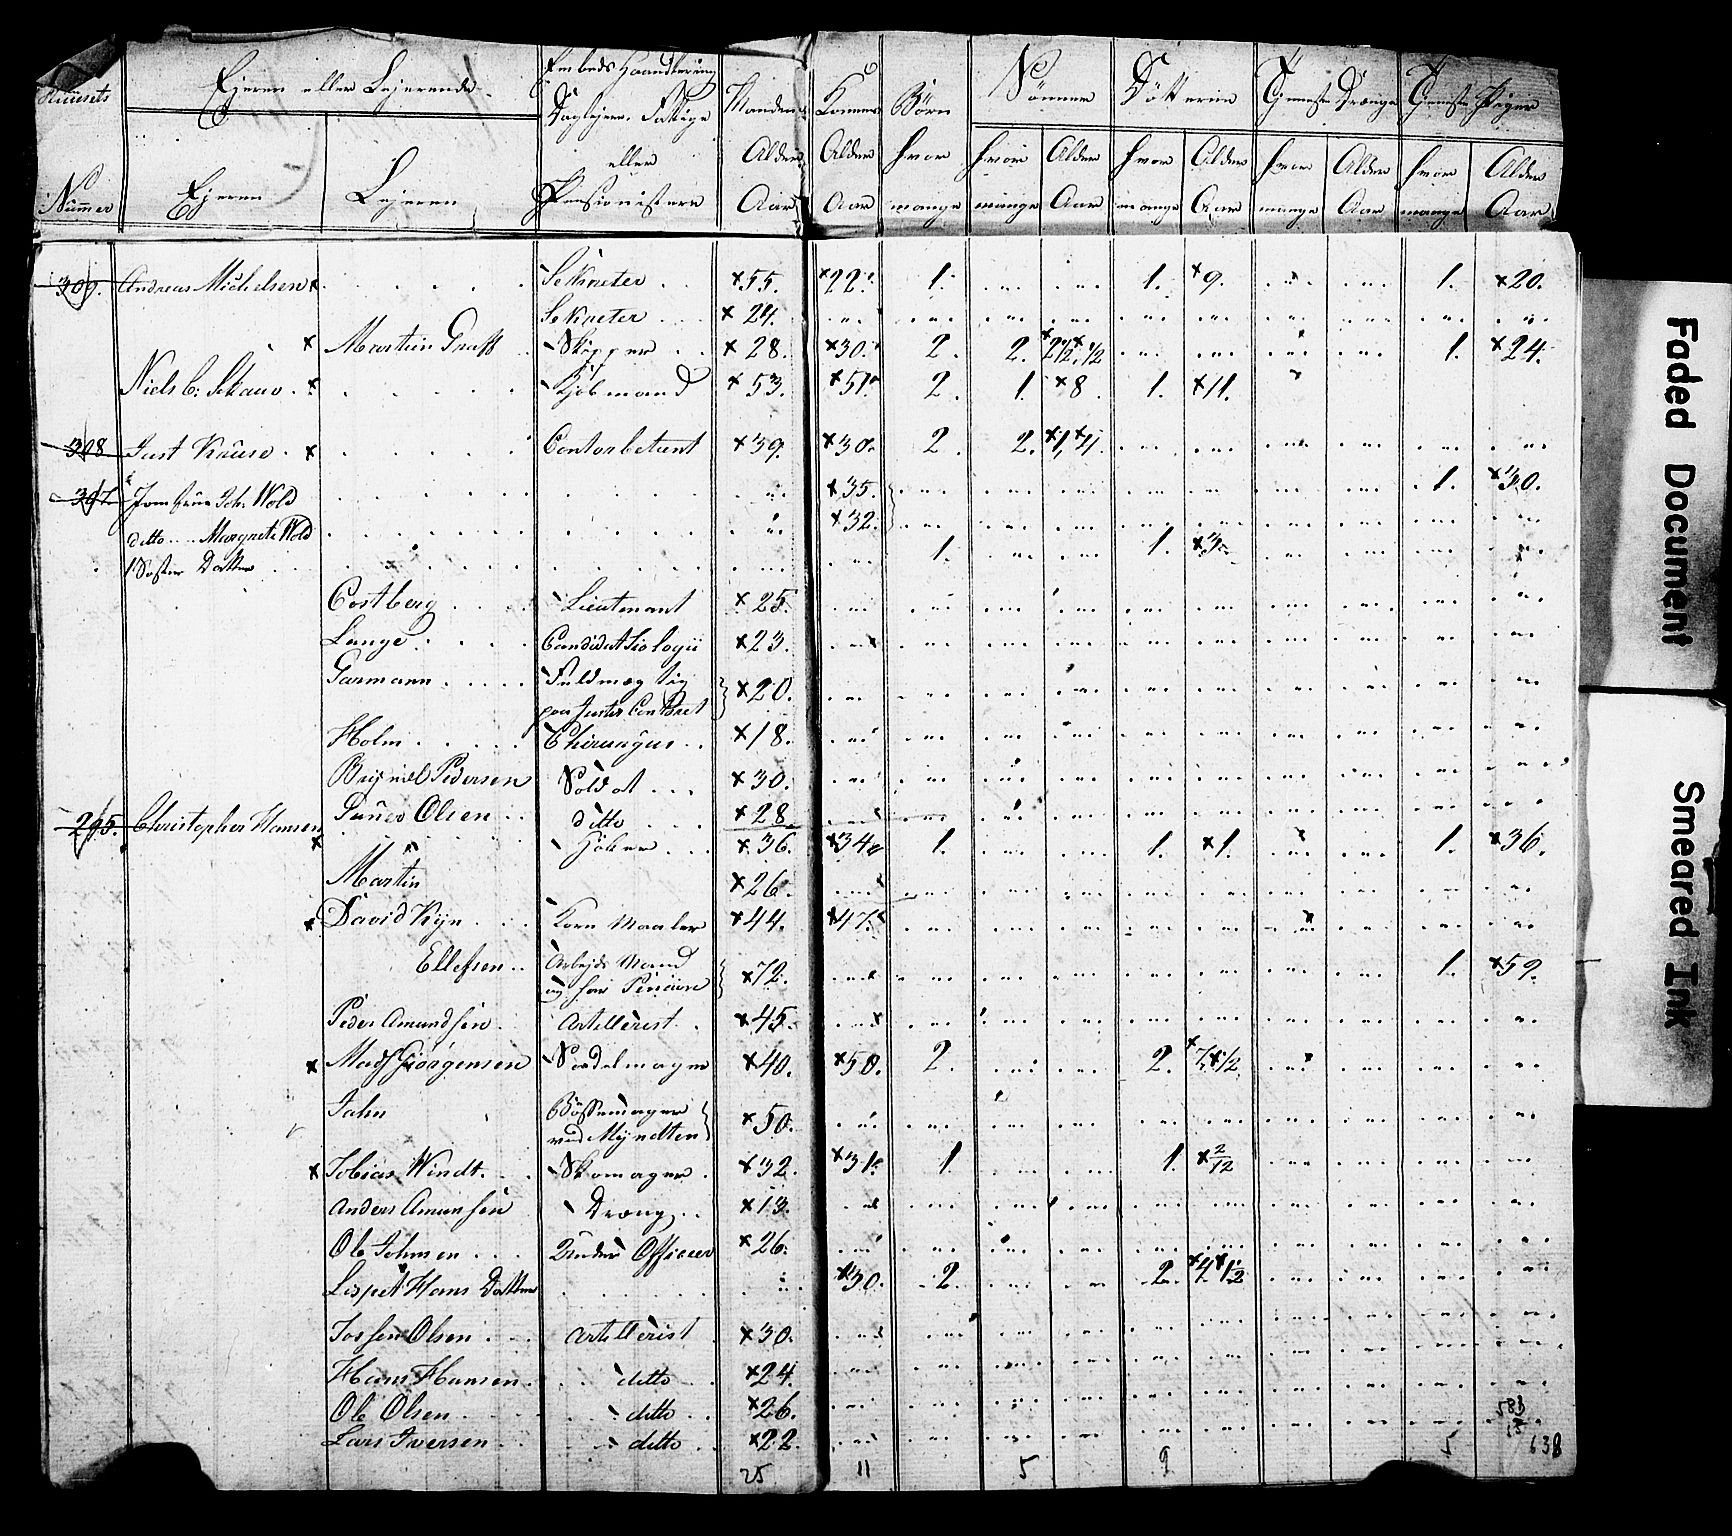 Huusets Nummer
Ejeren eller Lejerende
Ejeren Lejeren
Embeds Haandtering Daglejere, Fattige eller Pensionistere
Mandens Alder Aar
Konens Alder Aar
Börn hvor mange
Sönner hvor mange Alder Aar
Döttrene hvor mange Alder Aar
Tjeneste Drænge hvor mange Alder Aar
Tjeneste Piger hvor mange Alder Aar
309. Andreas Michelsen × Sekreter × 55. × 22. 1. 1. × 9. 1. × 20.
Sekreter × 24.
× Martin Graff Skipper × 28. × 30. 2. 2. × 2½. × ½ 1. × 24.
Niels C: Schauv × Kjöbmand × 53. × 51. 2. 1. × 8. 1. × 11.
308 Just Kruse × Contorbetient × 39. × 30. 2. 2. × 1, × 4.
307. Jomfrue Joh. Wold × 35. 1. × 30.
ditto Margrete Wold × 32.
1 Söster Datter 1. 1. × 3.
Costberg Lieutenant × 25.
Lange Candidat × 23.
Garmann Fuldmægtig paa Contoret × 20.
Holm Chirurgus × 18.
Brynild Pedersen Soldat × 30.
Olsen ditto × 28.
295. Christopher Hansen × Höker × 36. × 34. 1. 1. × 1. 1. × 36.
Martin × 26
× David Kyn Korn Maaler × 44. × 47.
Ellefsen Arbejds Mand og har Pension × 72. 1. × 59.
Peder Amundsen Artillerist × 45.
× Mads Jörgensen Sadelmager × 40. × 50. 2. 2. × 7. × ½
Jahn Bössemager ved Myndten × 50.
× Tobias Windt Skomager × 32. × 31. 1. 1. × 2/12
Anders Amunsen Dræng × 13.
Ole Johnsen Under Officeer × 26.
Lispet Hans Datter × 30. 2. 2. × 4. × 1½
Olsen Artillerist × 30.
Hans Hansen ditto × 24.
Ole Olsen ditto × 26.
Lars Iversen ditto × 22.
25 11 5 9 5
583
55
638
Faded Document
Smeared Ink